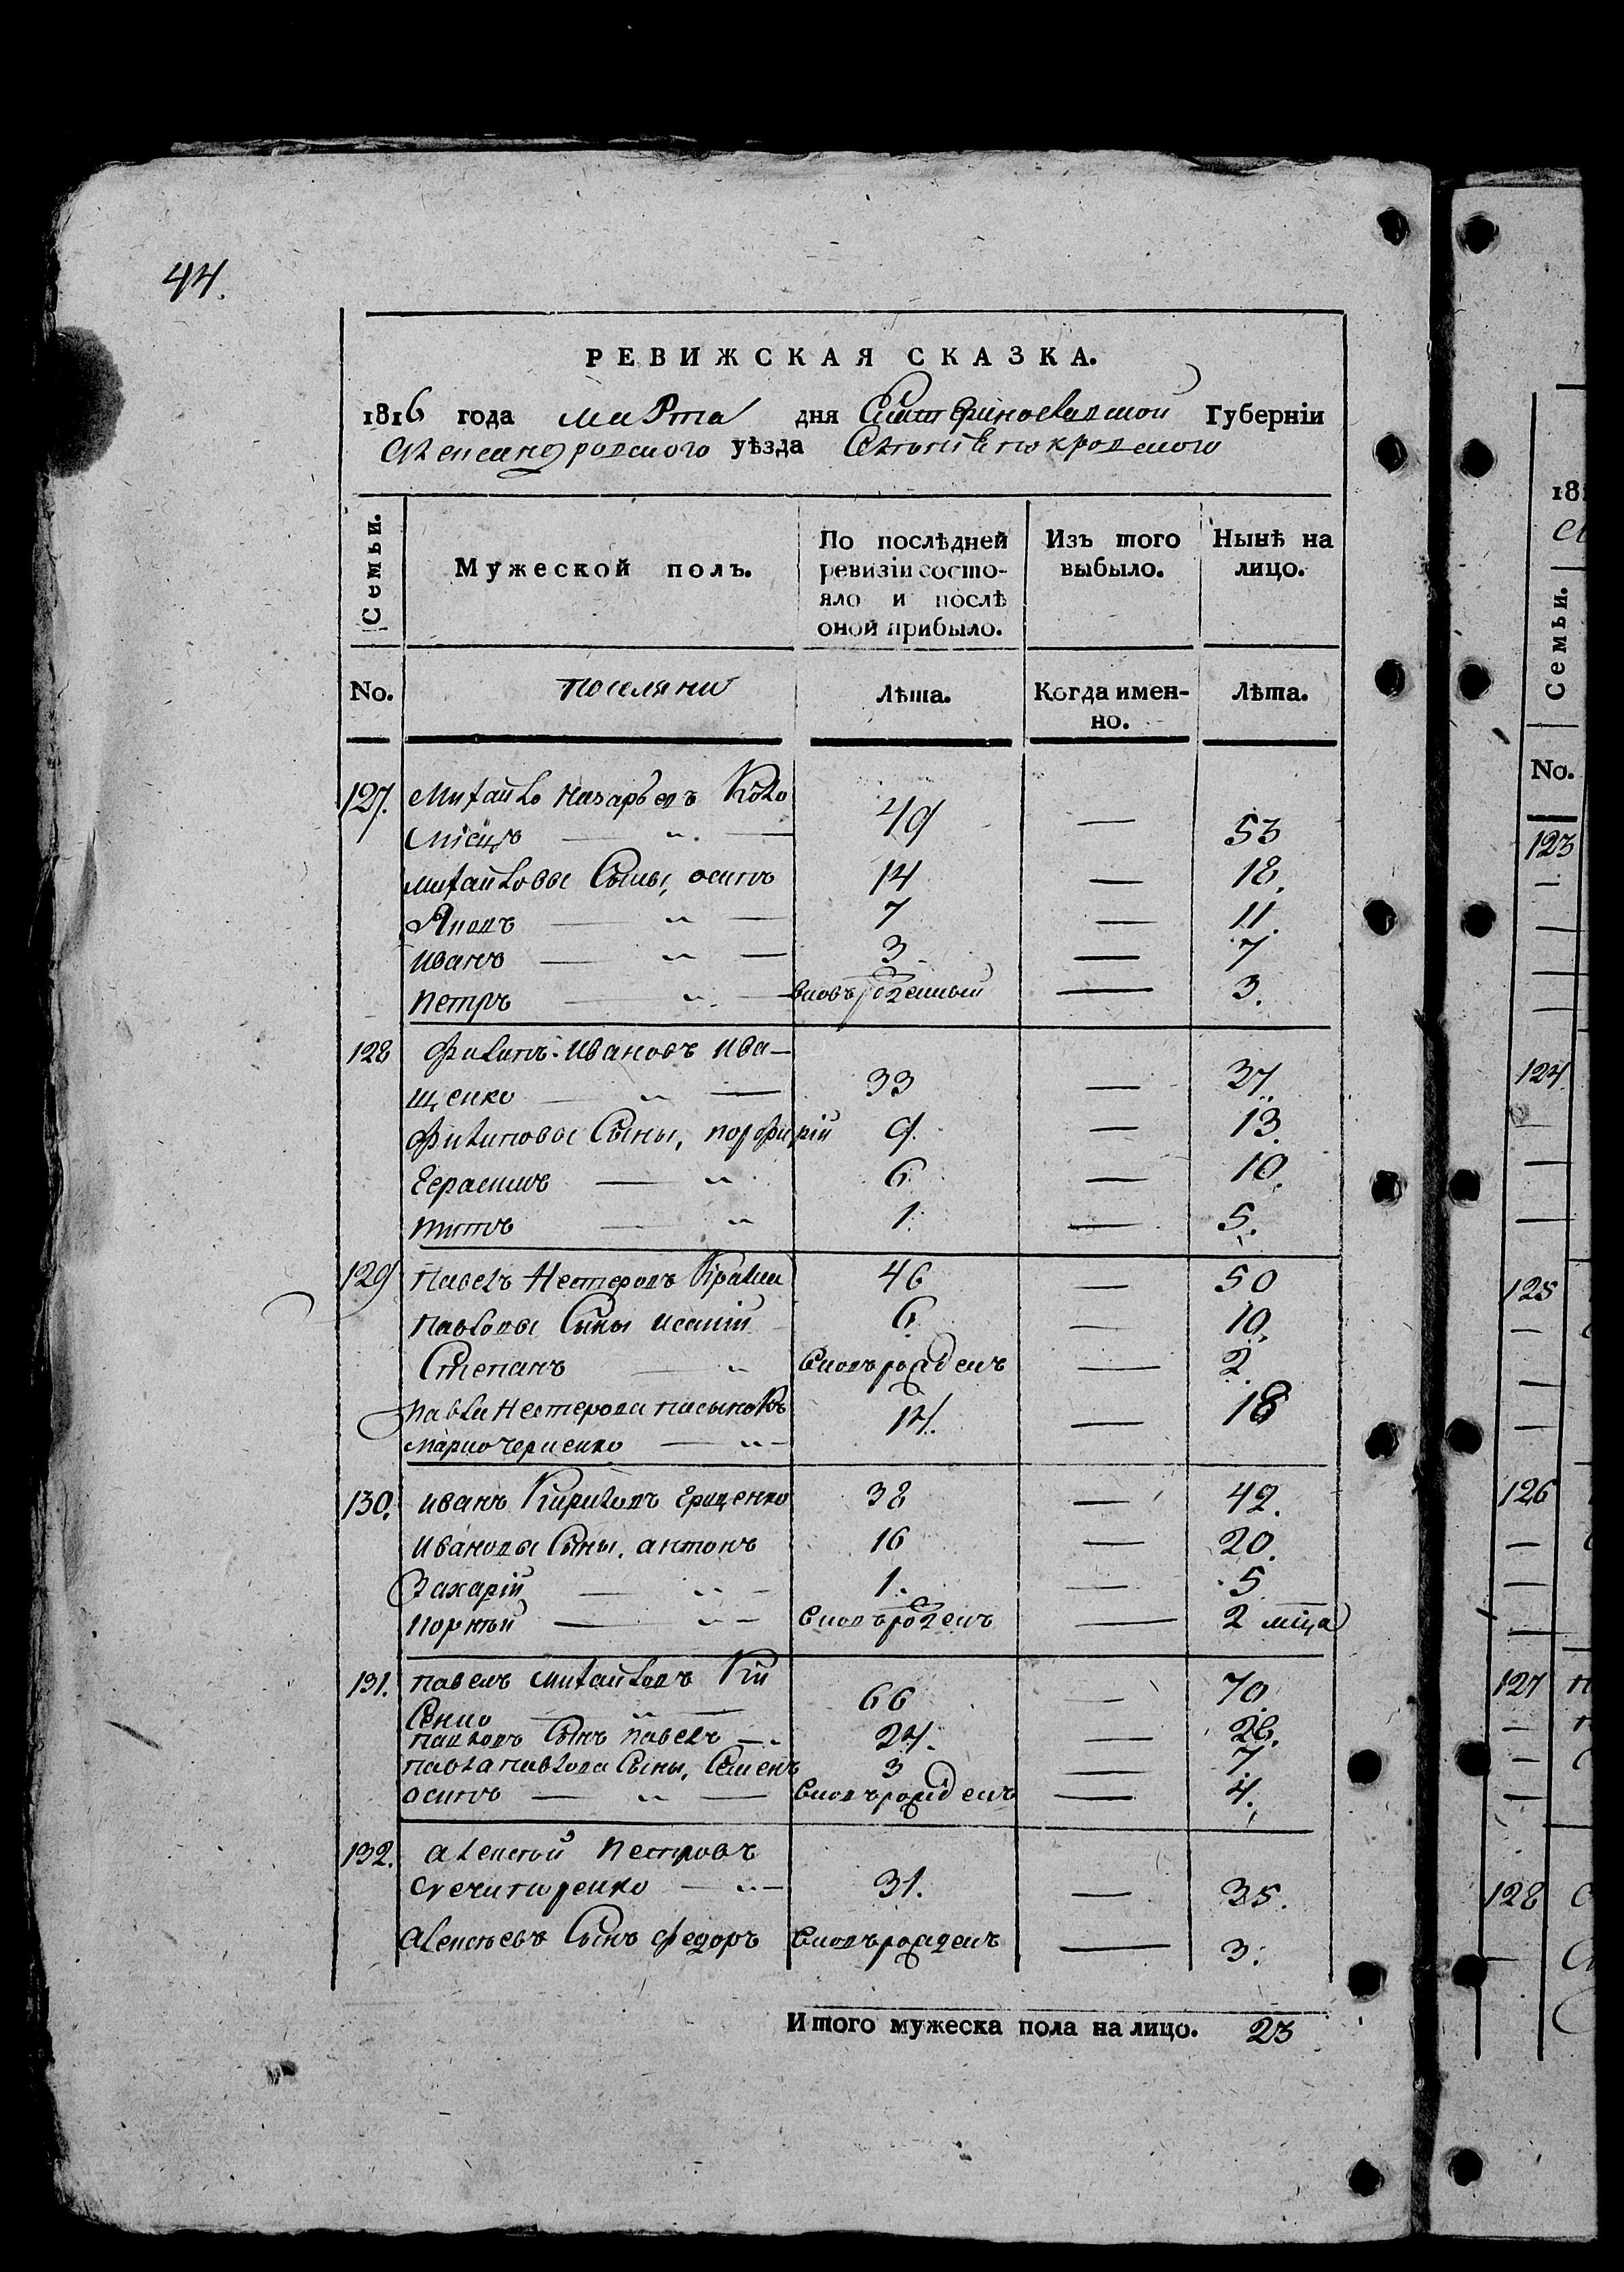 44.
РЕВИЖСКАЯ СКАЗКА.
1816 года марта дня Екатеринославской Губерніи
Александровского уѣзда
Семьи.
Мужеской полъ.
По послѣдней ревизіи состо-
яло и послѣ
оной прибыло.
Изъ того
выбыло.
Нынѣ на
лицо.
No. поселяни Лѣта. Когда имен-
но. Лѣта.
127. Михайло Назарьевъ Коло
мисцъ — „ — 49 — 53
михайловы Сыны, осипъ 14 — 18.
Яковъ — „ — 7 — 11.
иванъ — „ — 3 — 7
петръ — „ — вновь рожденный — 3.
128 Филипъ Ивановъ ива-
щенко — „ — 33 — 37.
Филиповы Сыны, порфирій 9. — 13.
Герасимъ — „ 6 — 10.
титъ — „ 1. — 5.
129 павелъ Нестеровъ 46 — 50
павловы Сыны исаий 6 — 10.
Степанъ — „ вновь рожденъ — 2.
павла Нестерова пасынокъ 14. — 18
— „ —
130. иванъ Кириловъ Ерщенко 38 — 42.
ивановы Сыны, антонъ 16 — 20.
Захарій — „ — 1. — 5
корнѣй — „ — вновь рожденъ — 2 мца
131. павелъ Михайловъ Кій
Сенко — „ — 66 — 70.
павловъ Сынъ павелъ — „ 24. — 28.
павла павлова Сыны, Семенъ 3 — 7.
осипъ — „ — вновь рожденъ — 4.
132. алексѣй петровъ
Нечипоренко — „ — 31. — 35.
алексѣевъ Сынъ федоръ вновь рожденъ — 3.
Итого мужеска пола на лицо. 23
181
Семьи.
No.
123
124
125
126
127
128